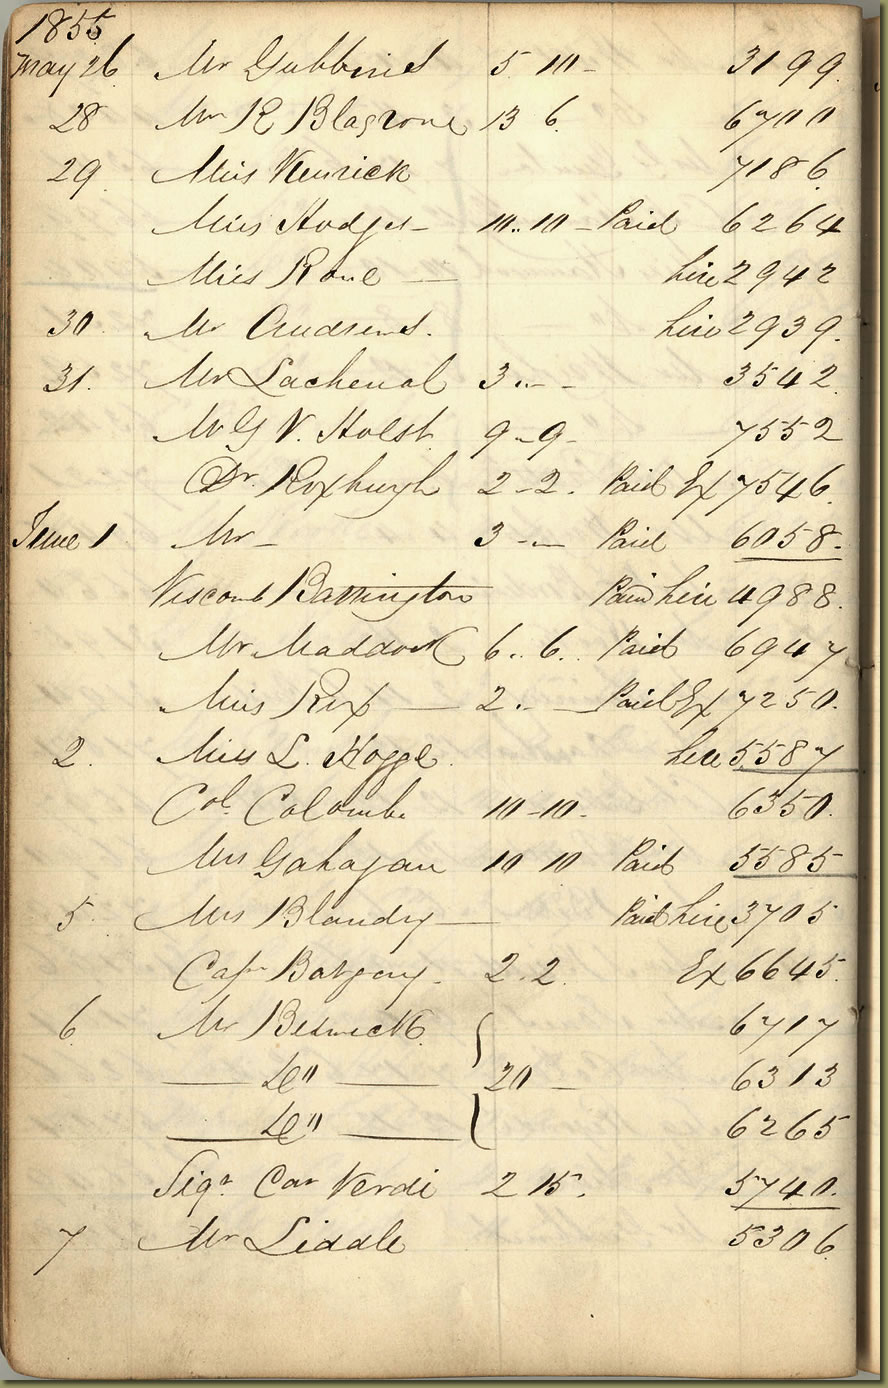 1855
May 26 Mr Gubbins 5 10 - 3199.
28 Mrs R Blagrove 13 6. 6700
29 Miss Kenrick 7186.
Miss Hodges - 10.. 10 - Paid 6264
Miss Rowe — hire 2942
30 Mr Andrews. hire 2939.
31. Mr Lachenal 3 .. - 3542.
Mr G V. Holst 9 - 9 - 7552
Dr. Roxburgh 2 - 2. Paid Ex 7546.
June 1 Mr - 3 - — Paid 6058.
Viscount Barrington Paid hire 4988.
Mr Maddock 6.. 6.. Paid 6947
Miss Rix — 2. - — Paid Ex 7250.
2. Miss L. Hogge. hire 5587
Col. Colombe 10 - 10. 6350.
Mrs Gahagan 10 10 Paid 5585
5. Mrs Blandy — Paid hire 3705
Capn 2 . 2. Ex 6645.
6 Mr Beswick 6717
— Do " — 20 - 6313
— Do " — 6265
Sigr Car Verdi 2 15. 5740.
7 Mr Liddle 5306.